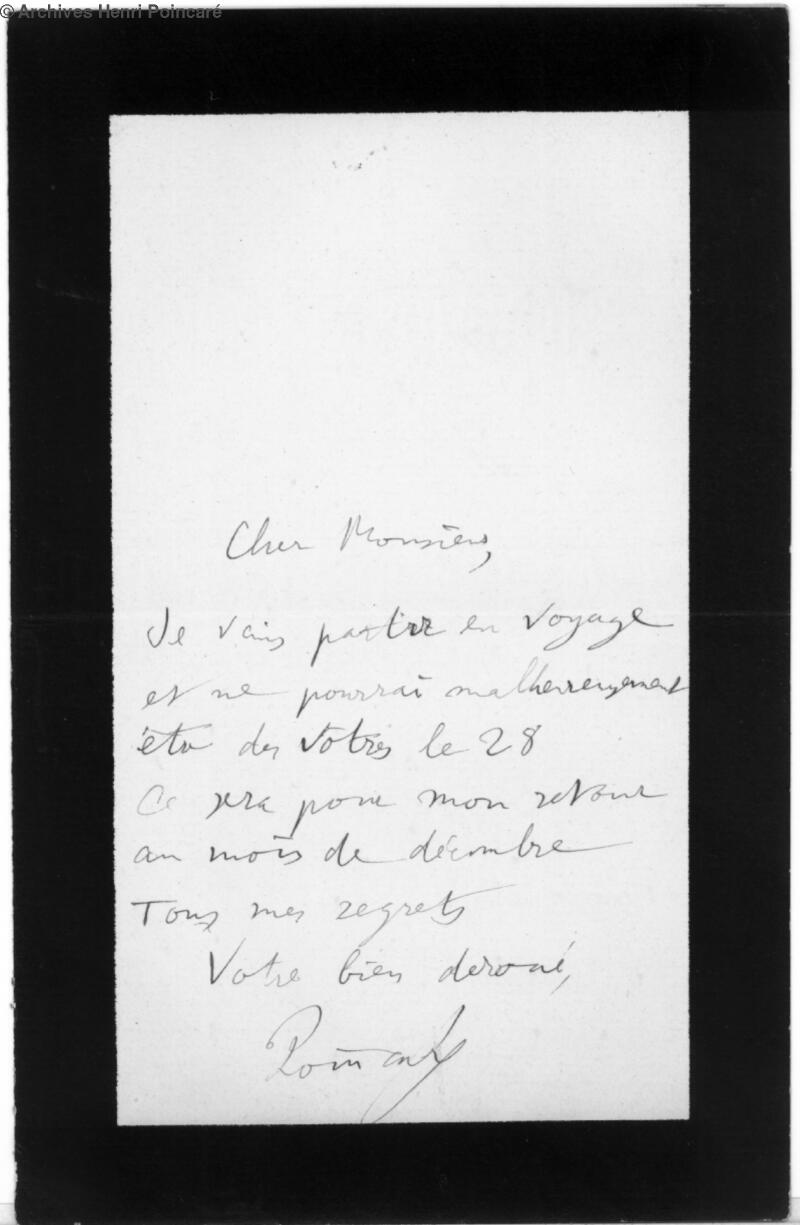 © Archives Henri Poincaré
Cher Monsieur,
Je vais partir en voyage
et ne pourrai malheureusement
être des vôtres le 28
Ce sera pour mon retour
au mois de décembre
Tous mes regrets
Votre bien dévoué,
Poincaré